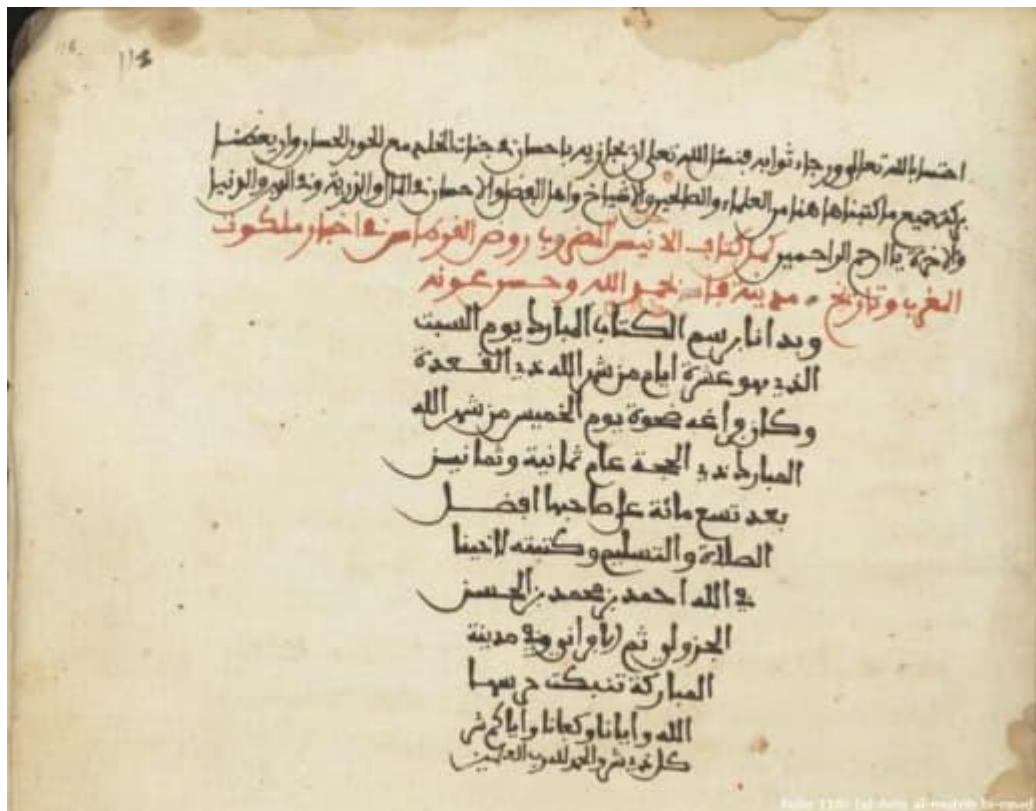 118.
113
احتسابا لله تعالى ورجاء ثوابه فنسئل الله تعلى ان يجازيه باحسان في جنات مع الحور الحسان وان
بركة جميع ما كتبنا هاهنا من العلماء والصالحين والاشياخ واهل الفضل والاحسان في المال والذرية وفي الدين والدنيا
والاخرة يا ارحم الراحمين كمل كتاب الانيس المطرب روض القرطاس في اخبار ملكوت
المغرب وتاريخ مدينة فاس بحمد الله وحسن عونه
وبدانا برسم الكتاب المبارك يوم السبت
الذي هو عشرة ايام من شهر الله ذي القعدة
وكان فراغه ضحوة يوم الخميس من شهر الله
المبارك ذي الحجة عام ثمانية وثمانين
بعد تسع مائة على صاحبها افضل
الصلاة والتسليم وكتبته لاخينا
في الله احمد بن محمد بن الحسن
الجزولي ثم وفي مدينة
المباركة تنبكت حرسها
الله وايانا وكفانا واياكم شر
كل ذي شر والحمد لله رب العلمين